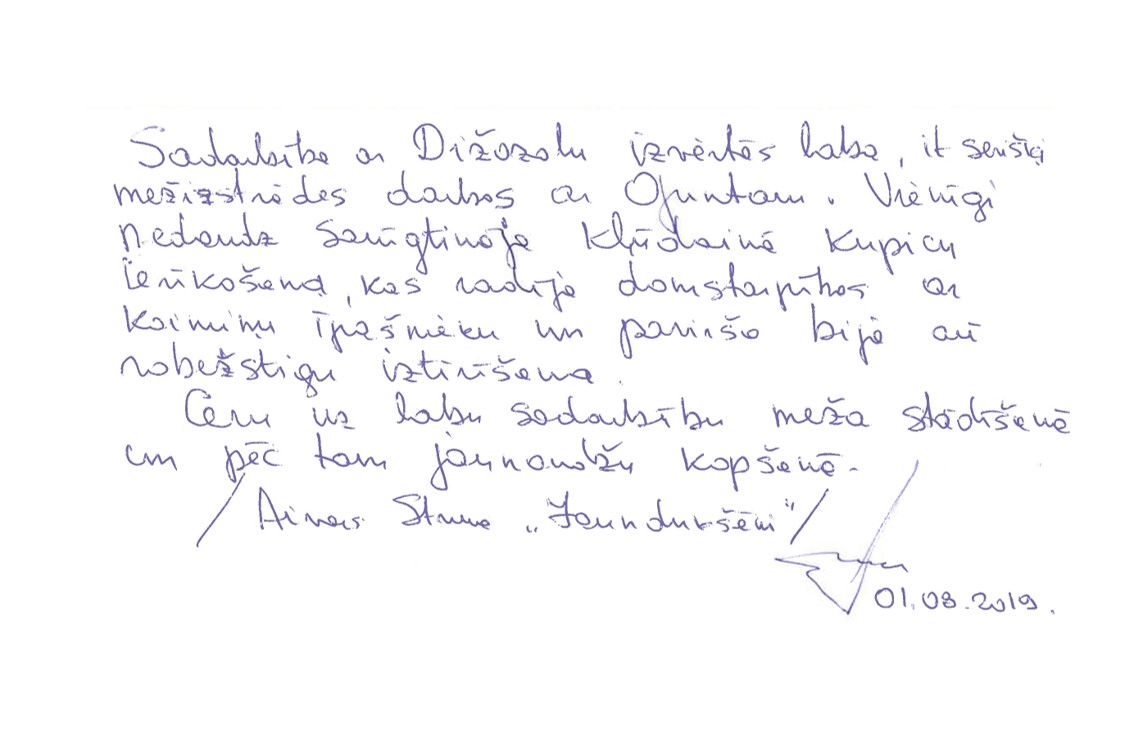 Sadarbība ar Dižozolu izvērtās laba, it sevišķi
mežizstrādes darbos ar Ojuntam. Vienīgi
nedaudz sarūgtināja kļūdainā kupicu
ierīkošana, kas radīja domstarpības ar
kaimiņu īpašnieku un pavirša bija arī
robežstigu iztīrīšana.
Ceru uz labu sadarbību meža stādīšanā
un pēc tam jaunaudžu kopšanā.
/ Aivars "Jaundukšēni" /
01.08.2019.